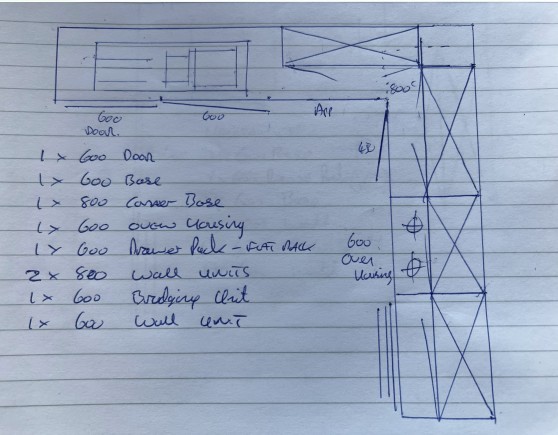 600
Door.
600
App
800c
1 x 600 Door
1 x 600 Base
1 x 800 Corner Base
1 x 600 oven Housing
1 x 600 Drawer Pack - FLAT PACK
2 x 800 Wall UNITS
1 x 600 Bridging Unit
1 x 600 Wall UNIT
600
Oven
Housing